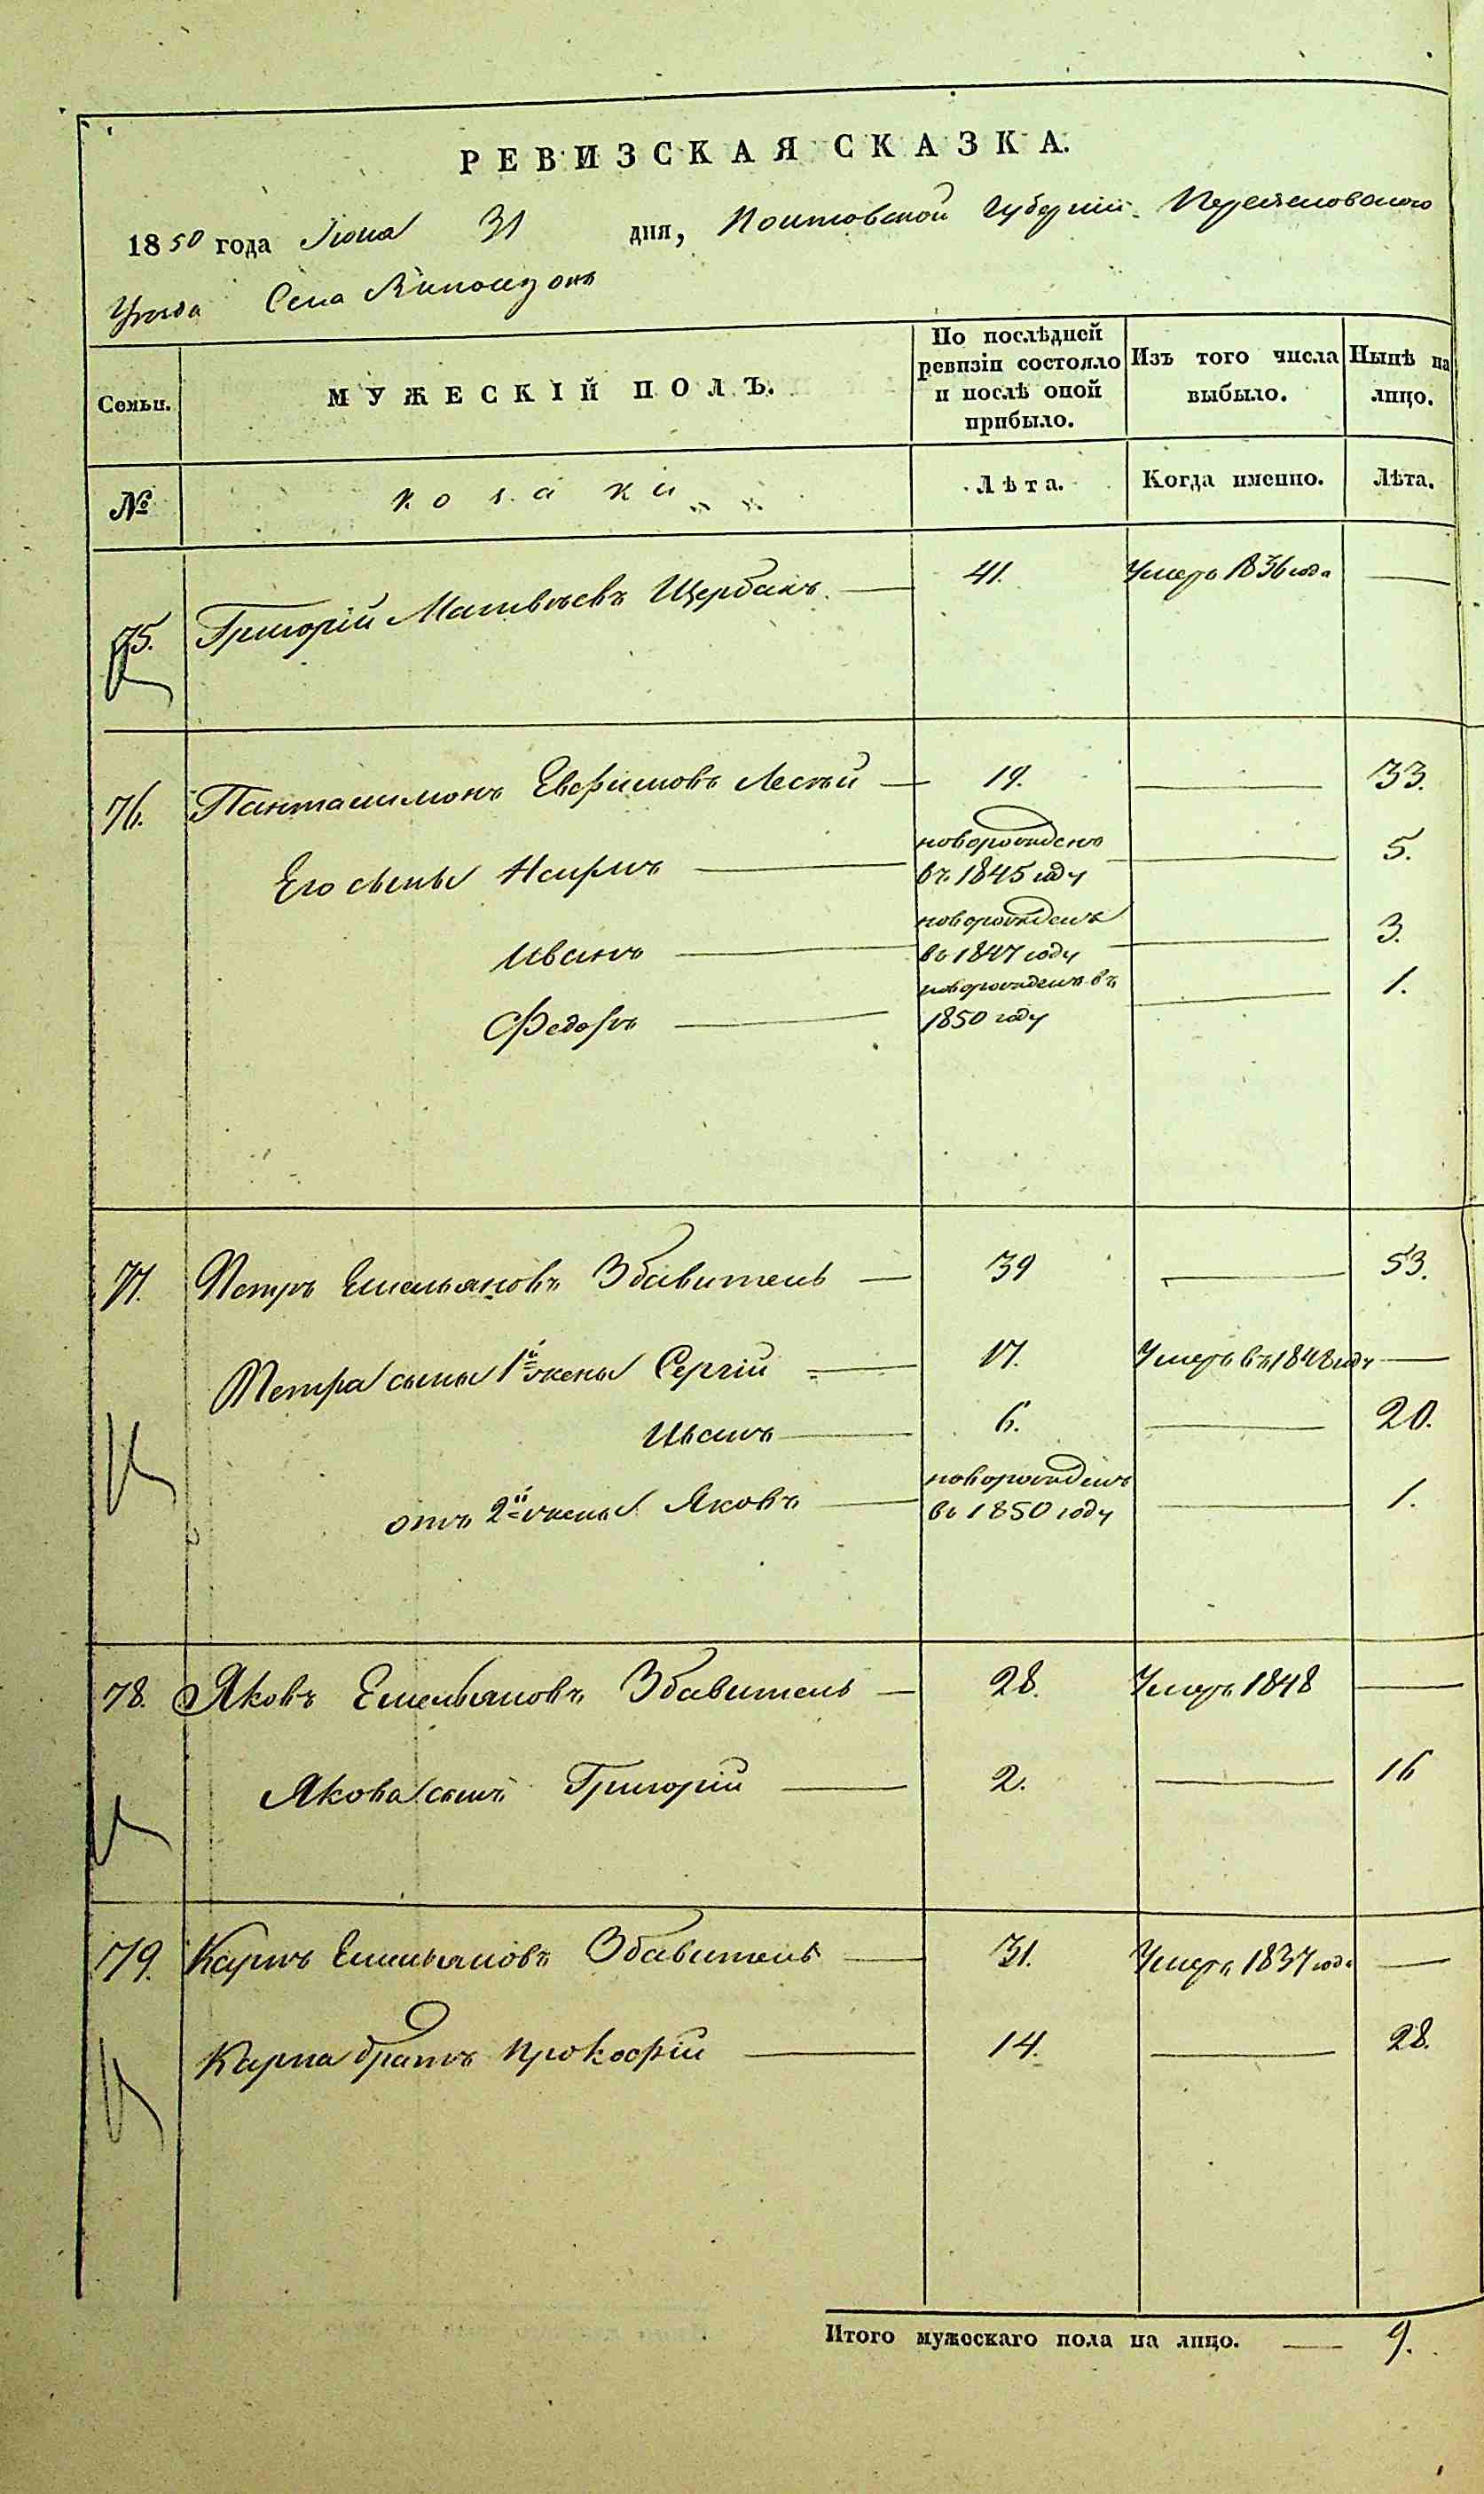 РЕВИЗСКАЯ СКАЗКА.
1850 года Июля 31 дня, Полтавской Губернии Переяславского
Уезда Села
Семьи. МУЖЕСКІЙ ПОЛЪ. По послѣдней ревизіи состояло и послѣ оной прибыло. Изъ того числа выбыло. Нынѣ на лицо.
№ козаки Лѣта. Когда именно. Лѣта.
75. Григорій Матвѣевъ Щербакъ — 41. Умеръ 1836 года —
76. Панталимонъ Евфимовъ — 19. — 33.
Его сыны — новорожденъ въ 1845 году — 5.
Иванъ — новорожденъ въ 1847 году — 3.
Федоръ — новорожденъ въ 1850 году — 1.
77. Петръ Емельяновъ Збавитель — 39 — 53.
Петра сыны 1й жены Сергій — 17. Умеръ въ 1848 году —
Иванъ — 6. — 20.
отъ 2й жены Яковъ — новорожденъ въ 1850 году — 1.
78. Яковъ Емельяновъ Збавитель — 28. Умеръ 1848 —
Якова сынъ Григорій — 2. — 16
79. Карпъ Емельяновъ Збавитель — 31. Умеръ 1837 года —
Карпа братъ Прокофій — 14. — 28.
Итого мужескаго пола на лицо. — 9.